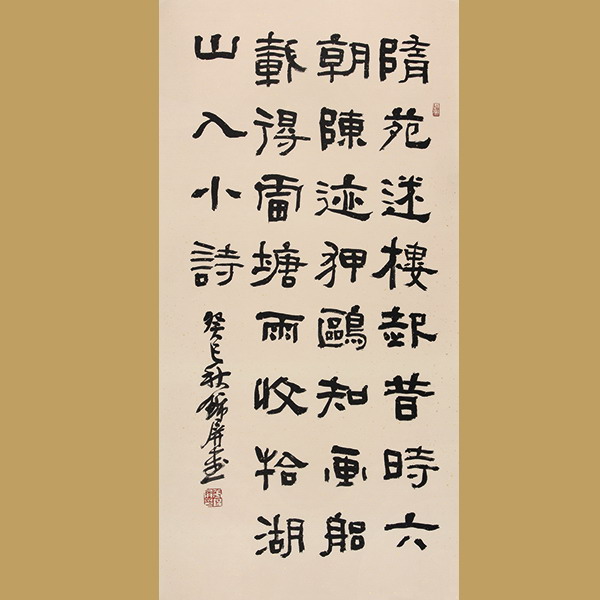 隋苑迷樓昔時六
朝陳迹狎鷗知画船
載得雷塘雨收拾湖
山入小詩
癸巳秋錦屏書